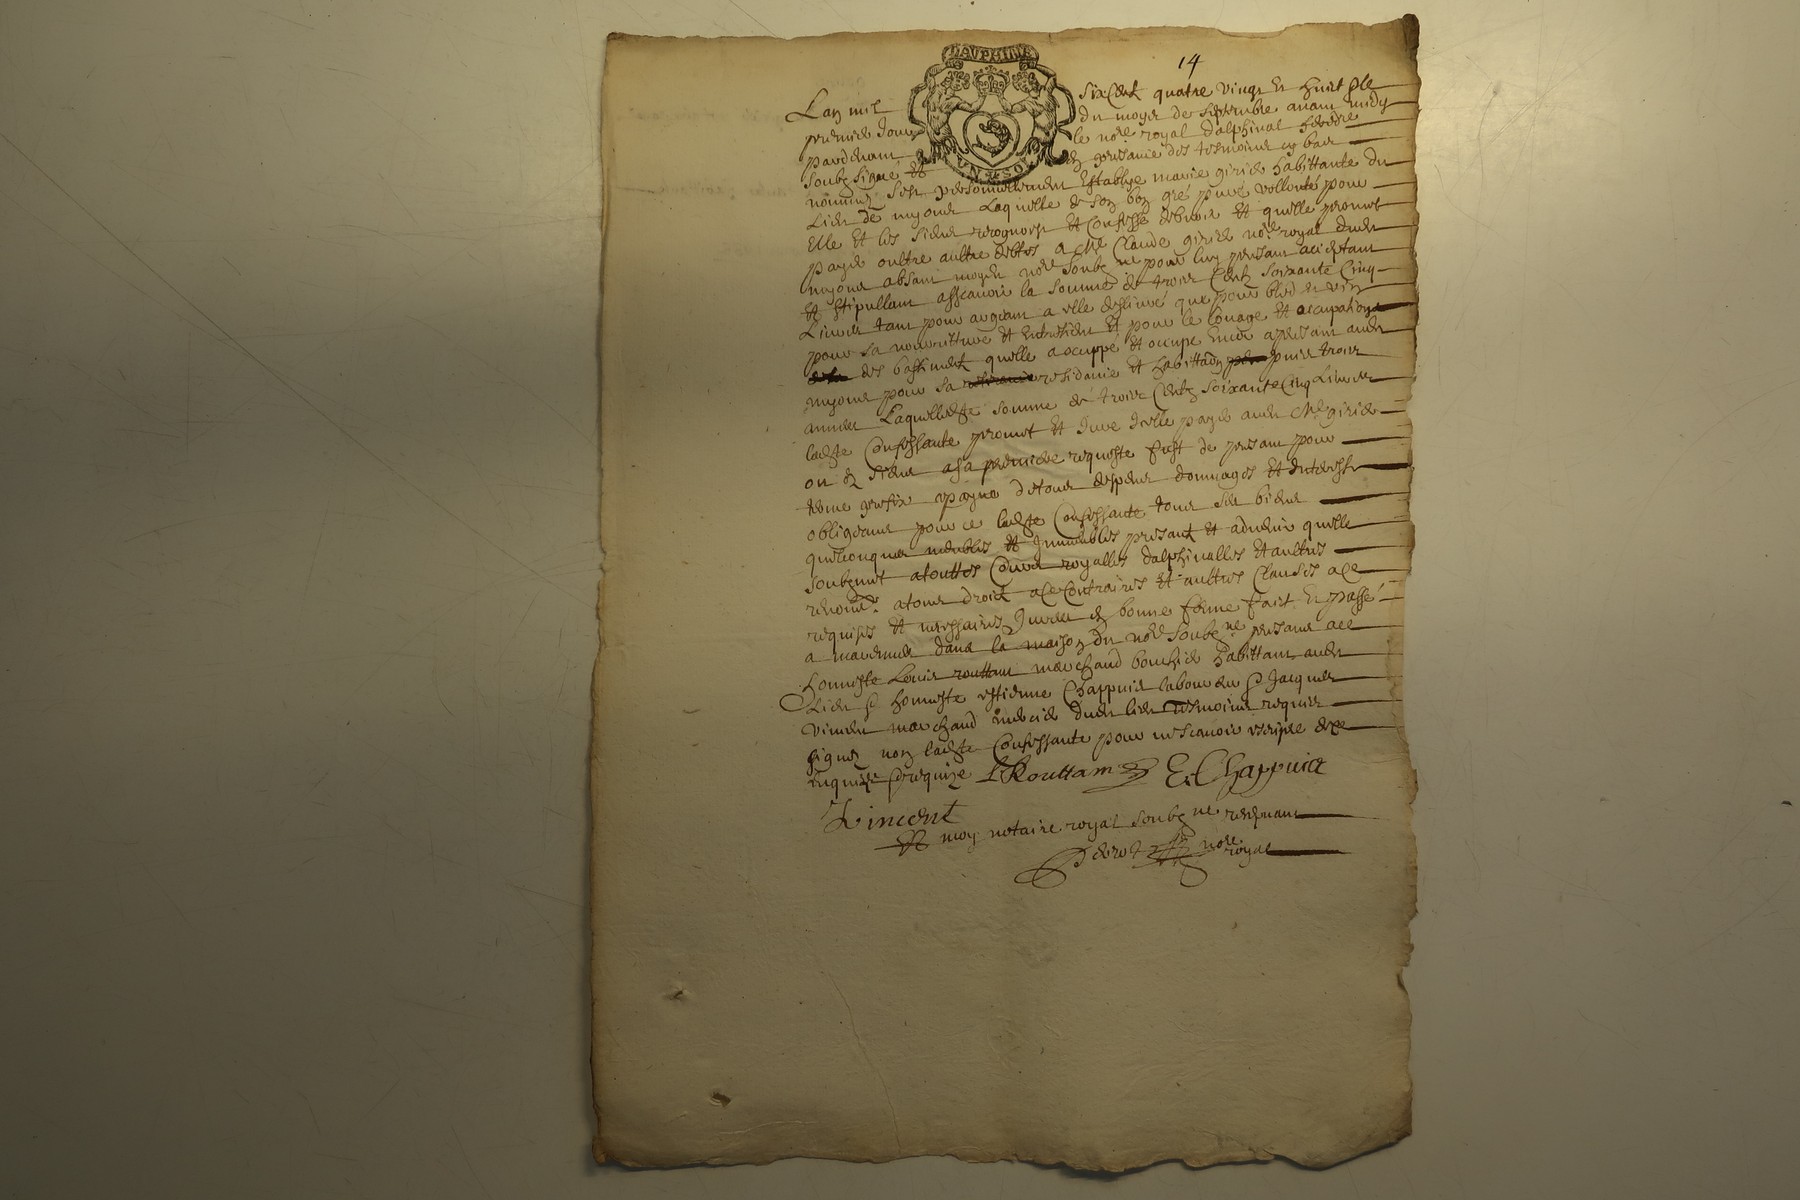 14
DAUPHINE
Lan mil sixCent quatre vingt et huict & le
premier Jour du moyes de septembre avant midy
pardevant le nore royal dalphinal hérédre
soubzsigné et en presance des tesmoins cy bas
nommez sest personnellement Establye marie girie habittante du
Lieu de myons Laquelle de son bon gré pure vollonté pour
Elle et les siens recognoist et Confesse debvoir et quelle promet
payer oultre aultre debtes a Me Claude girie nore royal dudt
myons absant moyen nore soubzne pour luy presant acceptant
et stipullant assavoir la somme de trois Centz soixante Cinq
Livres tant pour argeant a elle deslivré que pour bled et vin
pour sa nourriture et entretient et pour le louage et occupations
des bastiments quelle a occuppé et occupe encor apresant audt
myons pour sa residance et habittaon puis trois
annees Laquelledte somme de trois Centz soixante Cinq Livres
ladte Confessante promet et Jure Icelle payer audt Me girie
ou ez siens a sa première requeste fust de presant pour
terme prefix a payne de tous despens dommages et Interestz
obligeant pour ce ladte Confessante tous ses biens
quelconques meubles et Immeubles presant et advenir quelle
soubzmet a touttes Cours royalles dalphinalles et aultres
renoncet a tous droict a Ce Contraires et aultres Clauses a Ce
requises et necessaires Jurees en bonne forme faict et passé
a dans la maison du nore soubzne presant ace
honneste Louis routtant marchand bouchie habittant audt
Lieu & honneste estienne Chappuis laboureur & Jacques
Vincent marchand mercie dudt lieu tesmoins requis
signez non ladte Confessante pour ne scavoir escripre de ce
enquize & requize L Routtam E Chappuict
Vincent
Et moy notaire royal soubzne recepvant
nore royal